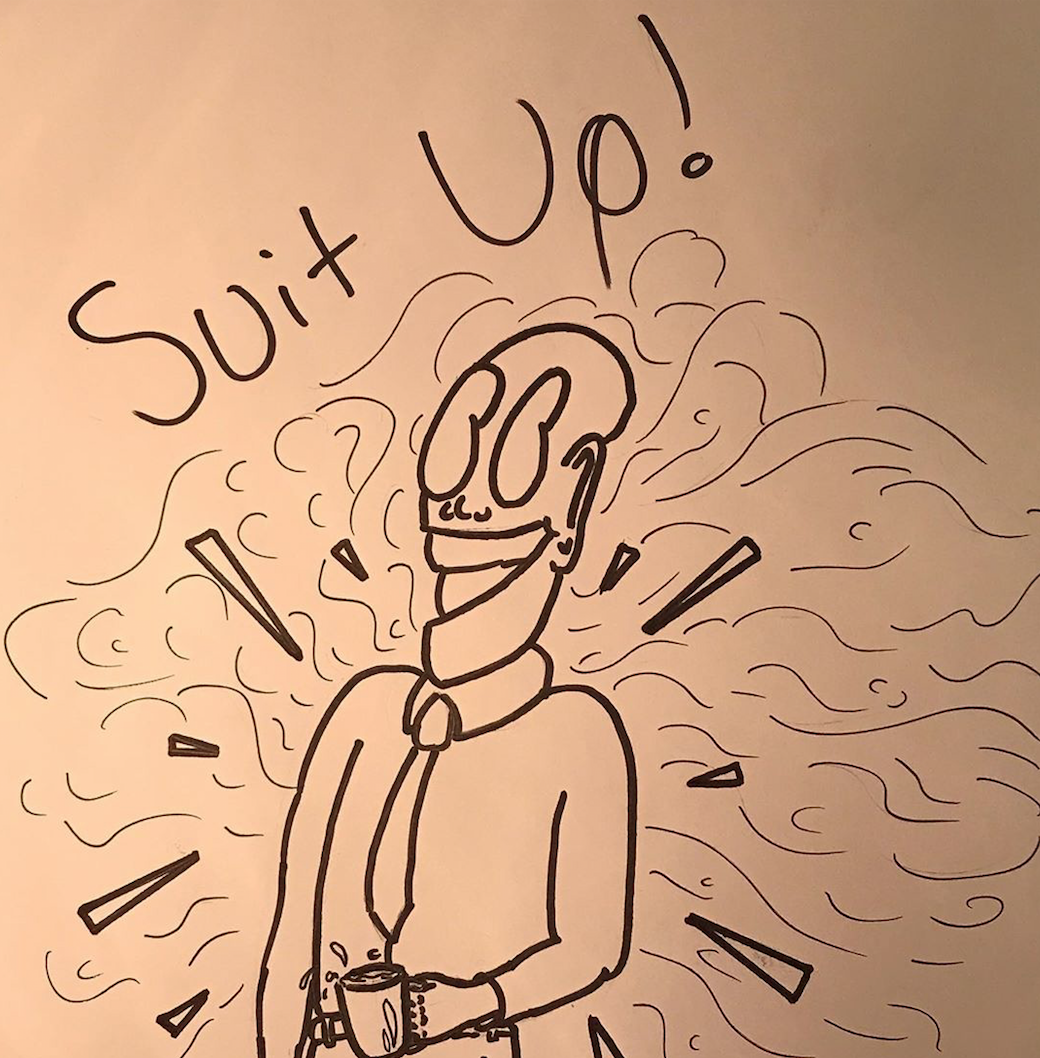 Suit Up!